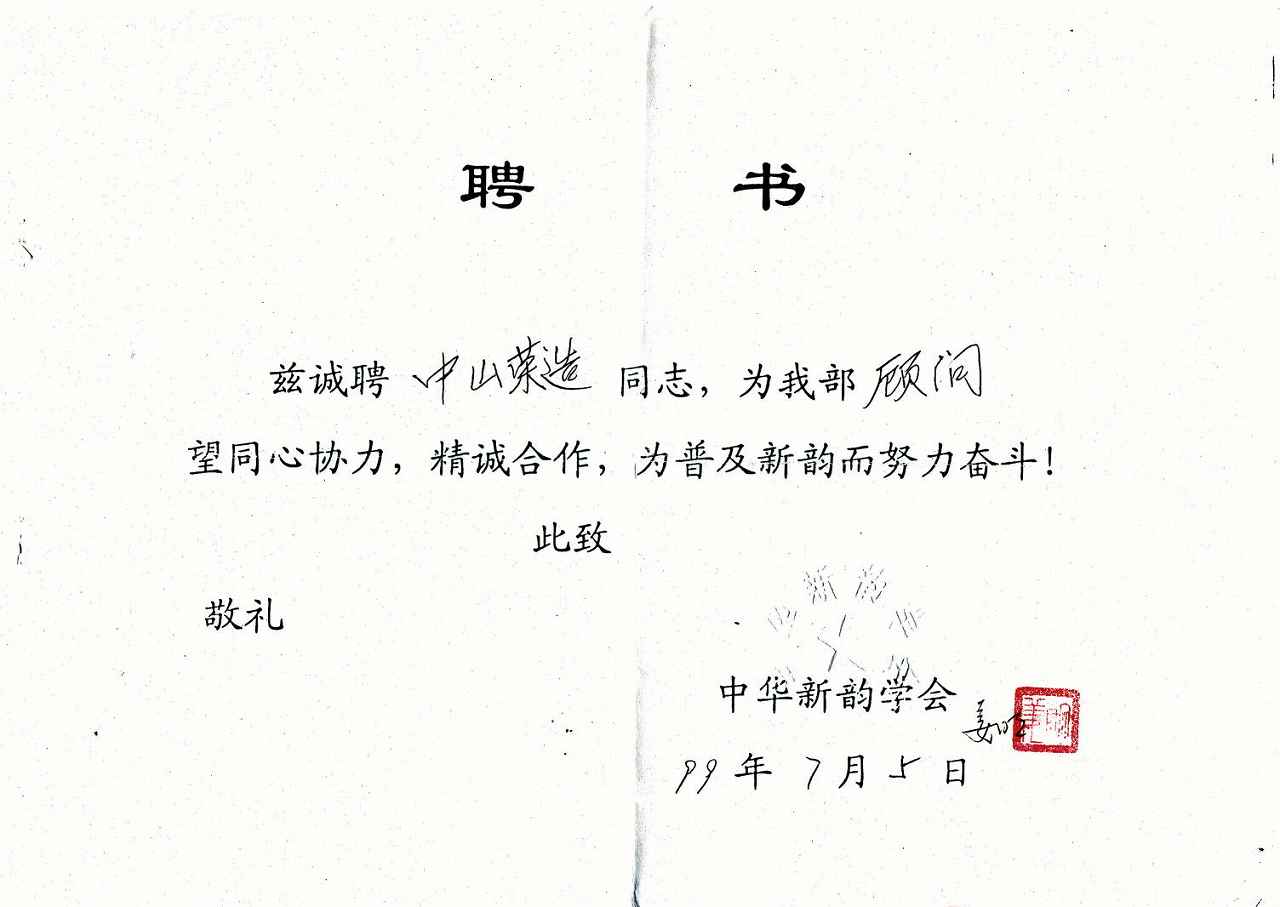 聘 书
兹诚聘 中山荣造 同志，为我部 顾问
望同心协力，精诚合作，为普及新韵而努力奋斗！
此致
敬礼
中华新韵学会
99年7月5日